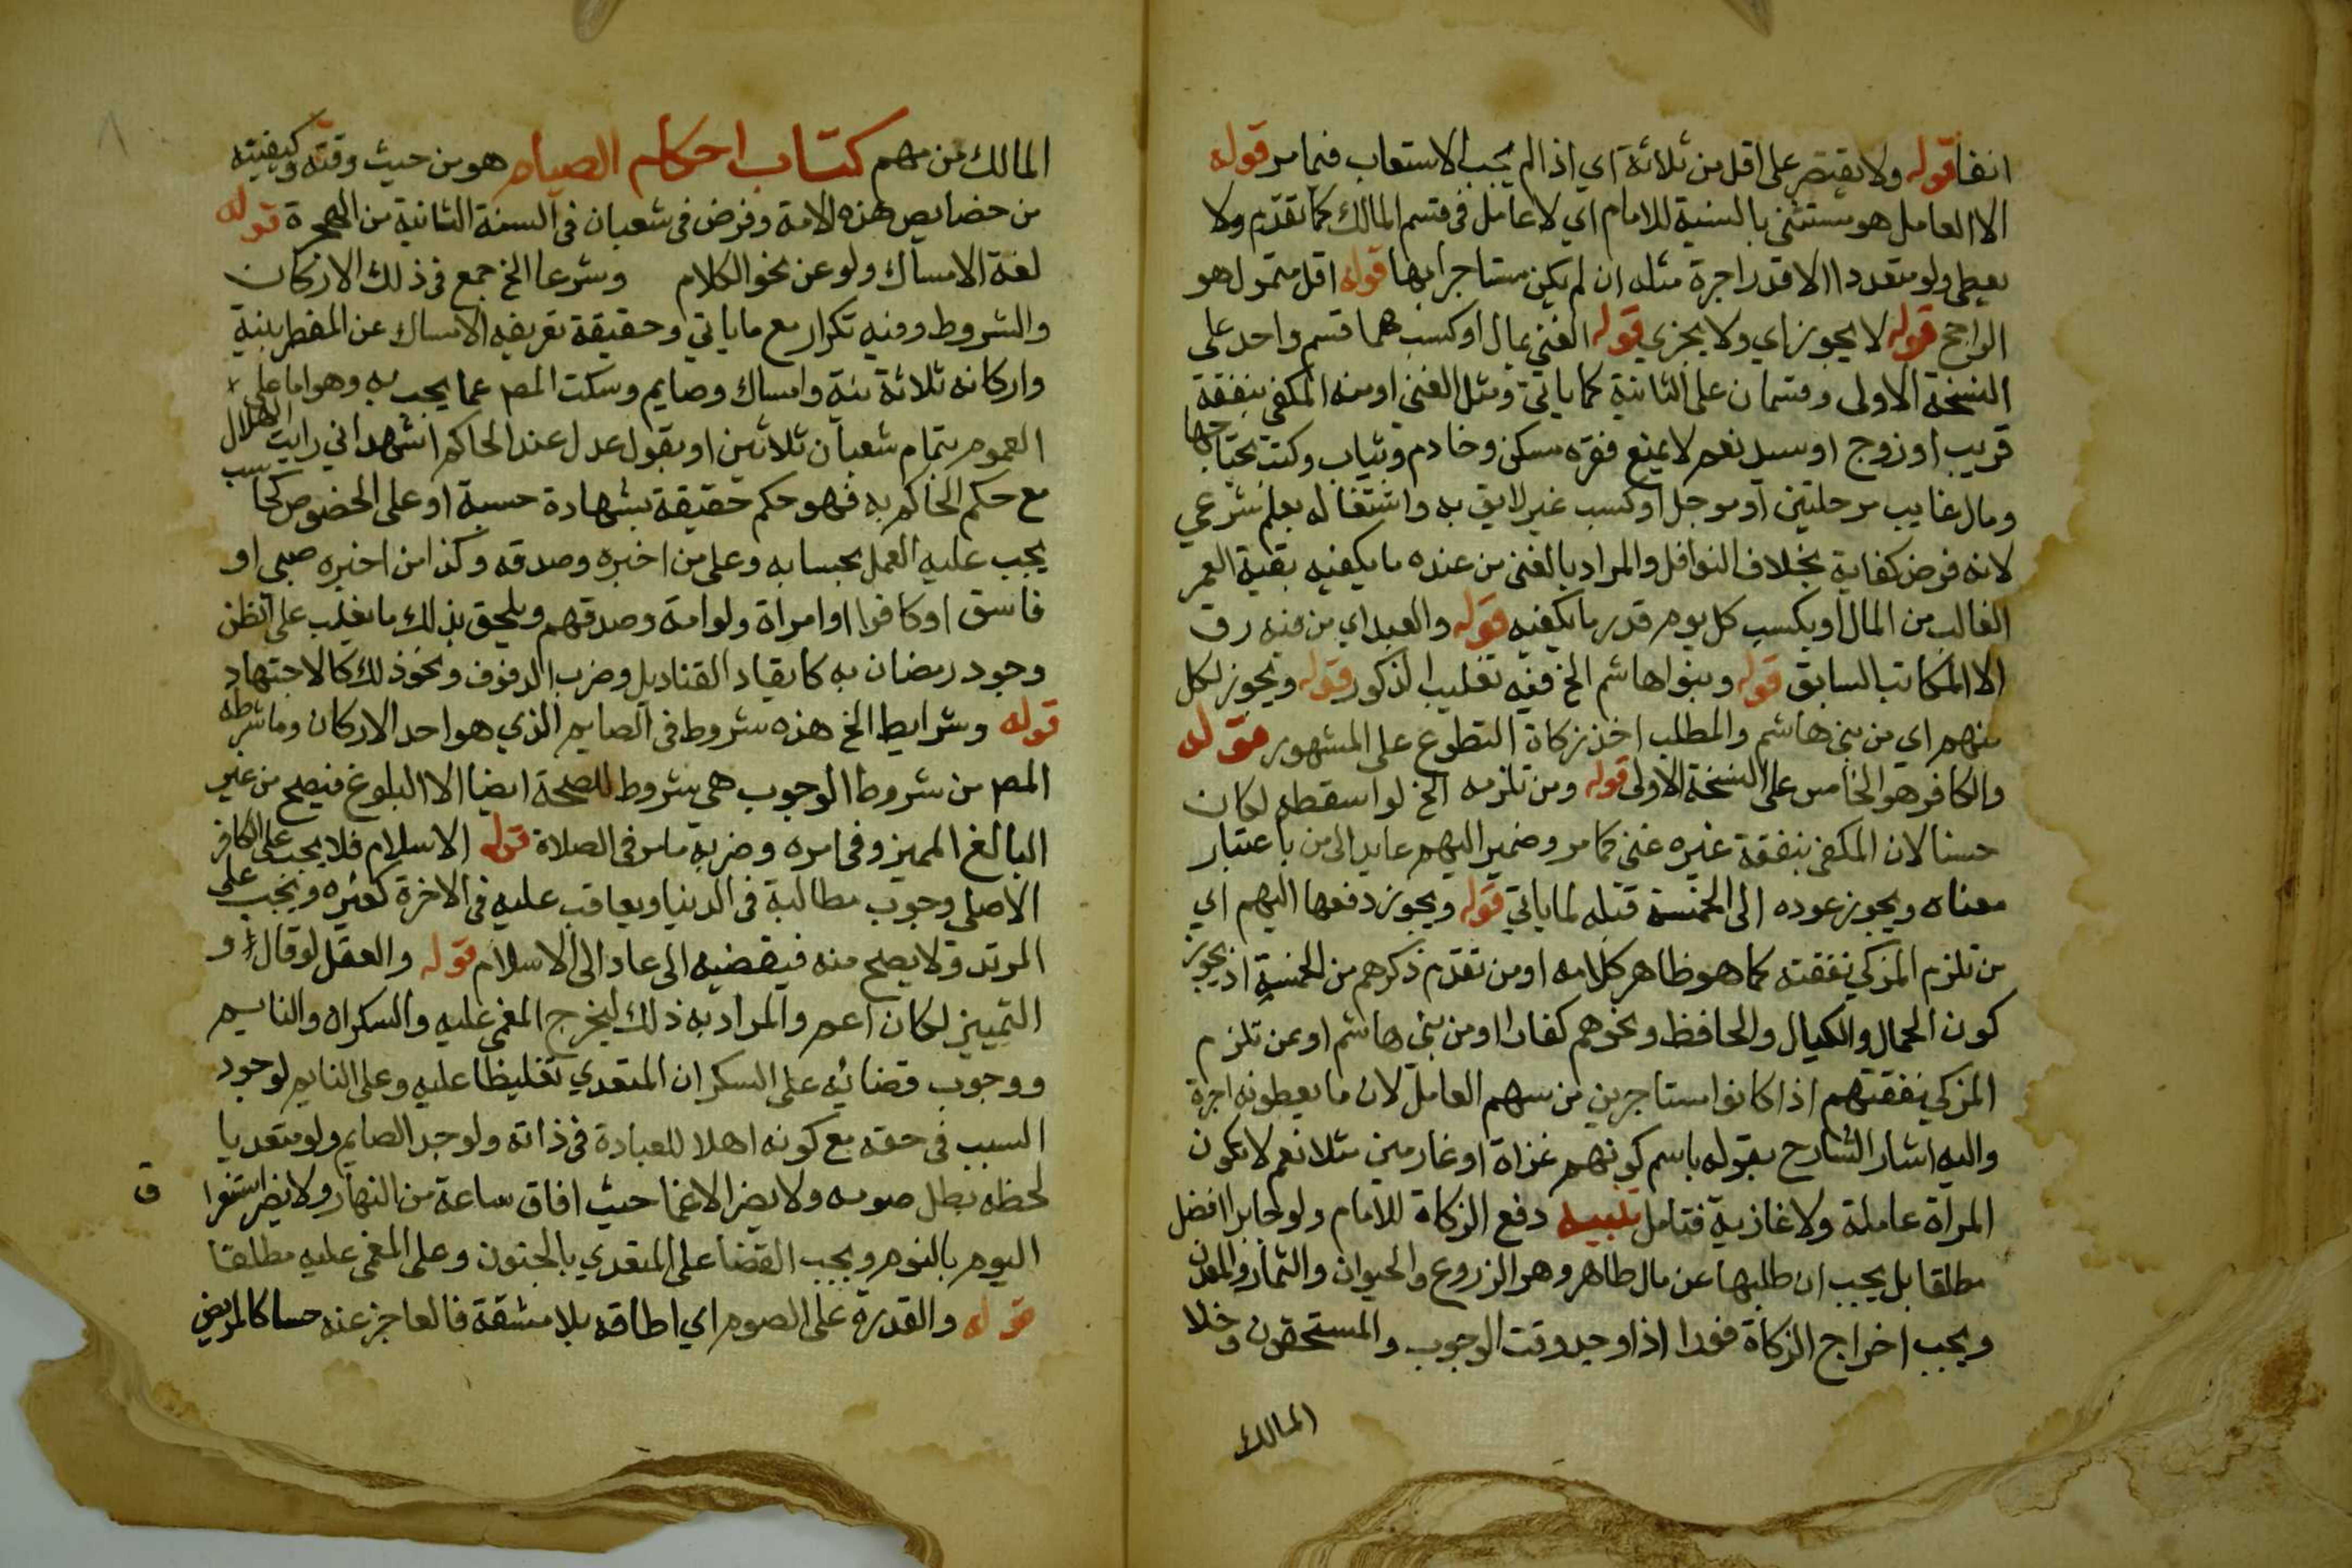 انفا قوله ولا يقتصر على اقل من ثلاثة اي اذا لم يجب الاستعاب فيما مر قوله
الا العامل هو مستثنى بالنسبة للامام اي لا عامل في قسم المالك كما تقدم ولا
يعطى ولو متعددا الا قدر اجرة مثله ان لم يكن مستاجرا بها قوله اقل متمول هو
الراجح قوله لا يجوز اي ولا يجزي قوله الغني بمال او كسب هما قسم واحد على
النسخة الاولى وقسمان على الثانية كما ياتي ومثل الغني او منه المكفي بنفقة
قريب او زوج او سيد نعم لا يمنع فقره مسكن وخادم وثياب وكتب يحتاجها
ومال غايب مرحلتين او موجل او كسب غير لايق به واشتغاله بعلم شرعي
لانه فرض كفاية بخلاف النوافل والمراد بالغني من عنده ما يكفيه بقية العمر
الغالب من المال او يكسب كل يوم قدر ما يكفيه قوله والعبد اي من فيه رق
الا المكاتب السابق قوله وبنوا هاشم الخ ففيه تغليب الذكور قوله ويجوز لكل
منهم اي من بني هاشم والمطلب اخذ زكاة التطوع على المشهور قوله
والكافر هو الخامس على النسخة الاولى قوله ومن تلزمه الخ لو اسقطه لكان
حسنا لان المكفي بنفقة غيره غني كما مر وضمير اليهم عايد الى من باعتبار
معناه ويجوز عوده الى الخمسة قبله لما ياتي قوله ويجوز دفعها اليهم اي
من تلزم المزكي نفقته كما هو ظاهر كلامه او من تقدم ذكرهم من الخمسة اذ يجوز
كون الحمال والكيال والحافظ ونحوهم كفارا او من بني هاشم او عن تلزم
المزكي نفقتهم اذا كانوا مستاجرين من سهم العامل لان ما يعطونه اجرة
واليه اشار الشارح بقوله باسم كونهم غزاة او غارمين مثلا نعم لا تكون
المراة عاملة ولا غازية فتامل تنبيه دفع الزكاة للامام ولو جايرا افضل
مطلقا بل يجب ان طلبها عن مال ظاهر وهو الزروع والحيوان والثمار والمعدن
ويجب اخراج الزكاة فورا اذا وجد وقت الوجوب والمستحقون وخلا
المالك
المالك من مهم كتاب احكام الصيام هو من حيث وقته وكيفيته
من خصايص هذه الامة وفرض في شعبان في السنة الثانية من الهجرة قوله
لغة الامساك ولو عن نحو الكلام وشرعا الخ جمع في ذلك الاركان
والشروط وفيه تكرار مع ما ياتي وحقيقة تعريفه الامساك عن المفطر بنية
واركانه ثلاثة نية وامساك وصايم وسكت المص عما يجب به وهو اما على
العموم بتمام شعبان ثلاثين او بقول عدل عند الحاكم اشهد اني رايت الهلال
مع حكم الحاكم به فهو حكم حقيقة بشهادة حسبة او على الخصوص كحاسب
يجب عليه العمل بحسابه وعلى من اخبره وصدقه وكذا من اخبره صبي او
فاسق او كافر او امراة ولو امة وصدقهم ويلحق بذلك ما يغلب على الظن
وجود رمضان به كايقاد القناديل وضرب الدفوف ونحو ذلك كالاجتهاد
قوله وشرايط الخ هذه شروط في الصايم الذي هو احد الاركان وما شرطه
المص من شروط الوجوب هي شروط للصحة ايضا الا البلوغ فيصح من غير
البالغ المميز وفي امره وضربه ما مر في الصلاة قوله الاسلام فلا يجب على الكافر
الاصلي وجوب مطالبة في الدنيا ويعاقب عليه في الاخرة كغيره ويجب على
المرتد ولا يصح منه فيقضيه الى عاد الى الاسلام قوله والعقل لو قال او
التمييز لكان اعم والمراد به ذلك ليخرج المغمى عليه والسكران والنايم
ووجوب قضائه على السكران المتعدي تغليظا عليه وعلى النايم لوجود
السبب في حقه مع كونه اهلا للعبادة في ذاته ولو جن الصايم ولو متعديا
لحظه بطل صومه ولا يضر الاغما حيث افاق ساعة من النهار ولا يضر استغرا
ق
اليوم بالنوم ويجب القضا على المتعدي بالجنون وعلى المغمى عليه مطلقا
قوله والقدرة على الصوم اي اطاقه بلا مشقة فالعاجز عنه حسا كالمريض